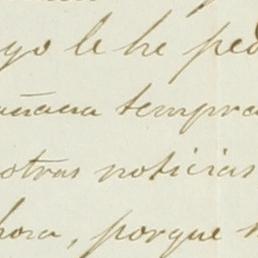 yo le he ped
añana tempra
otras noticias
hora, porque